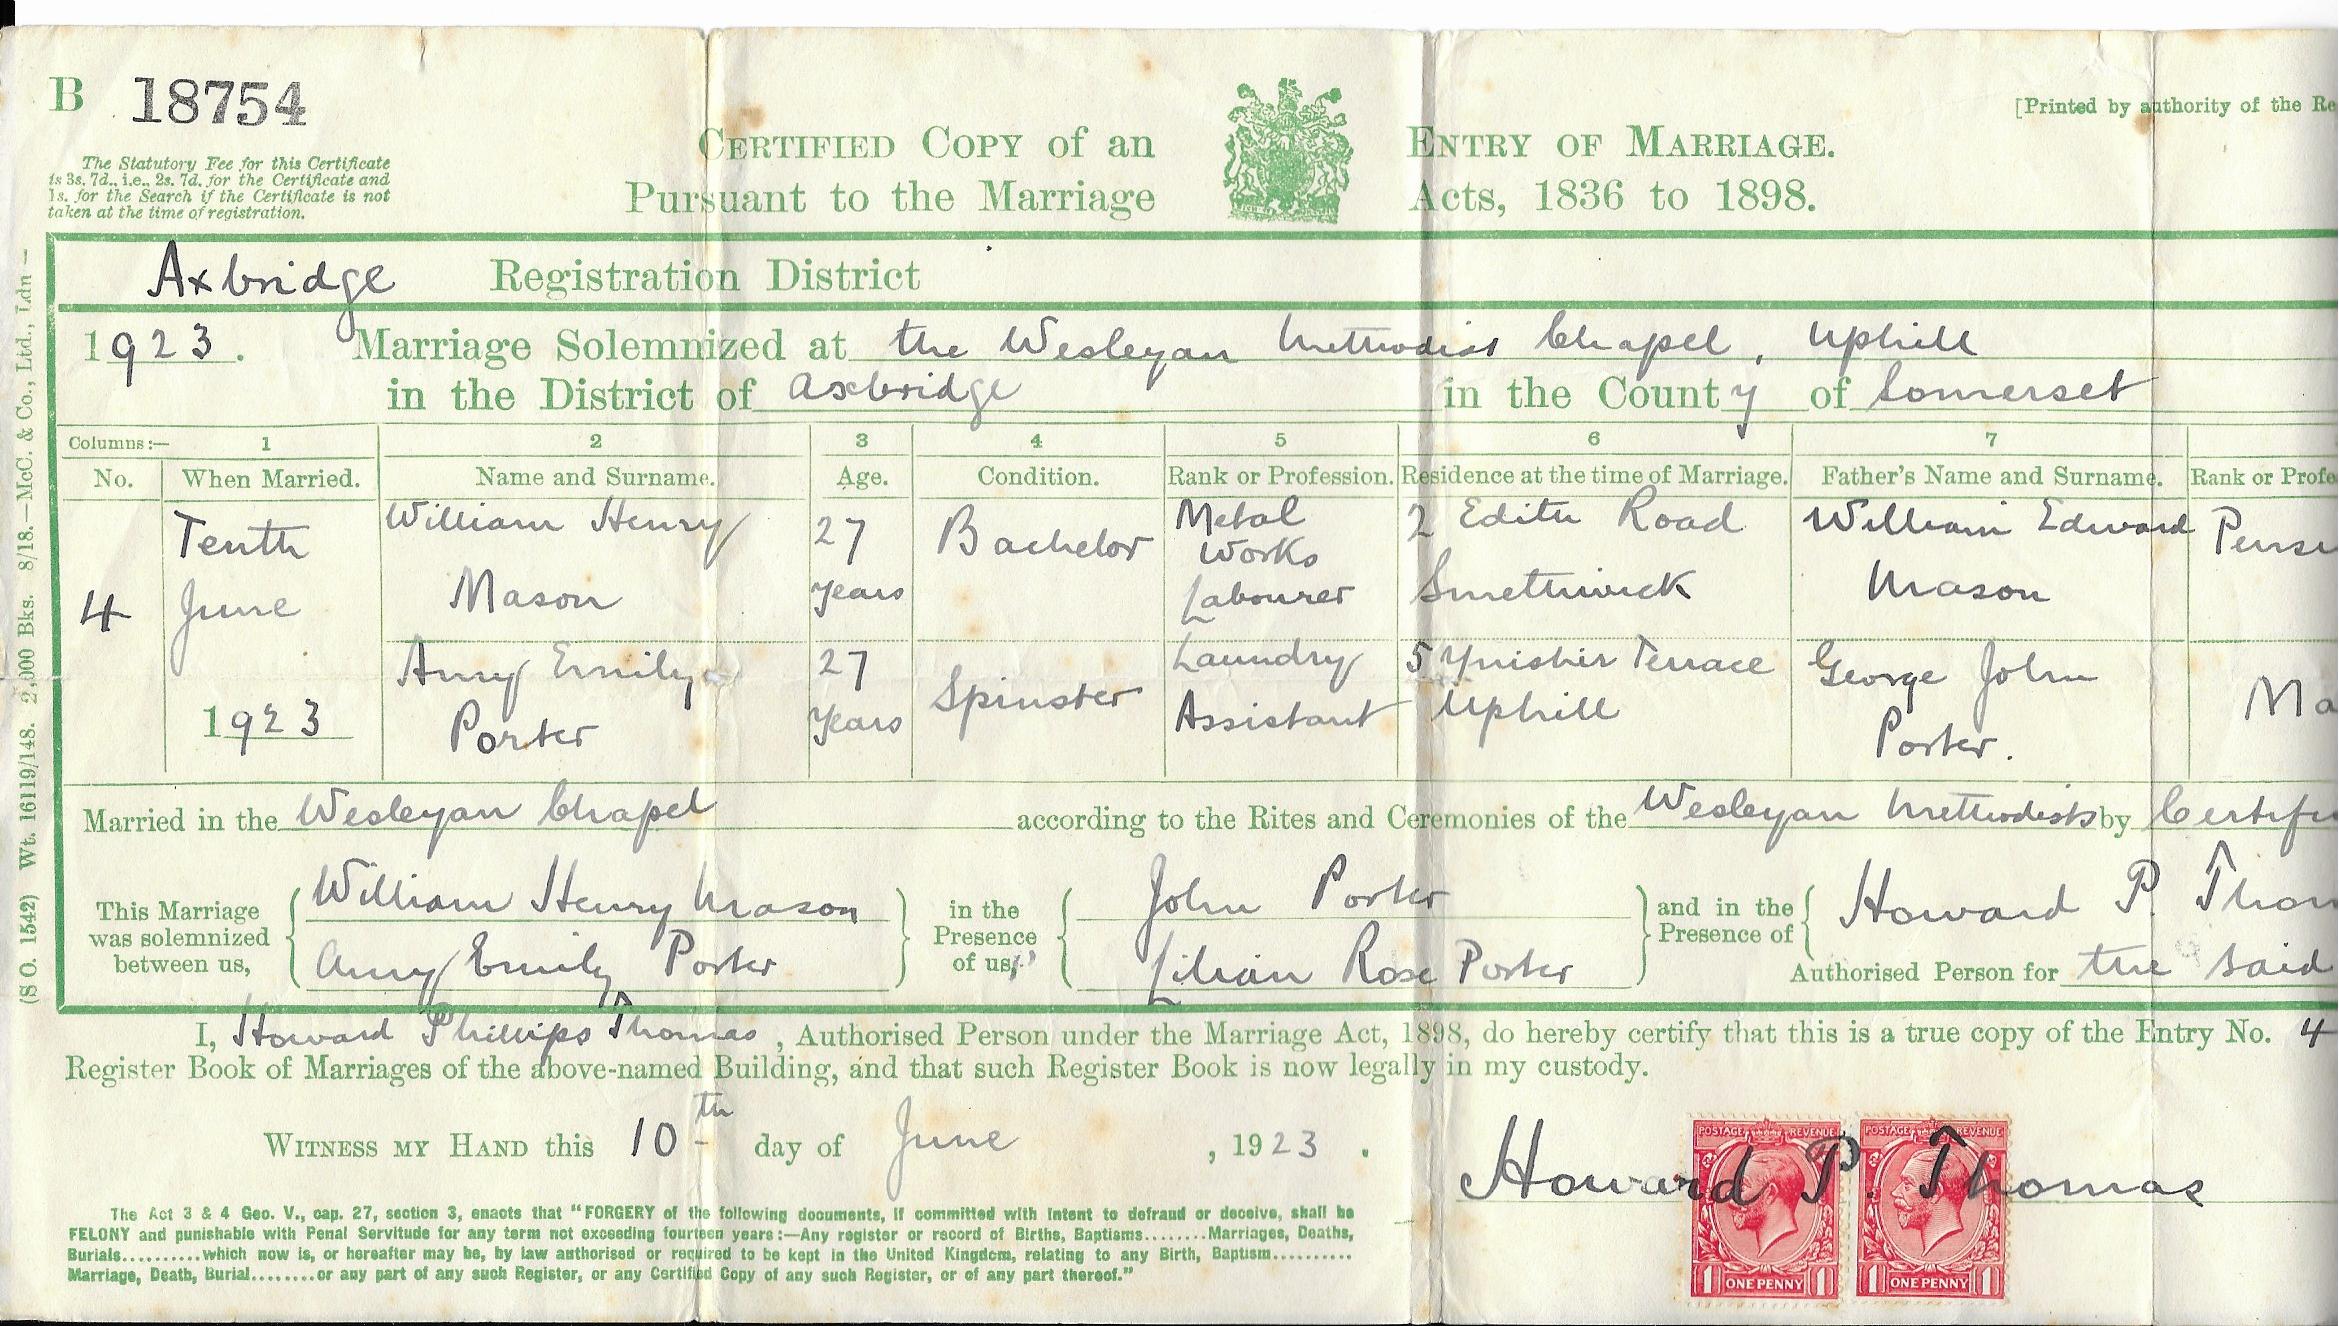 B 18754
[Printed by authority of the Re
The Statutory Fee for this Certificate
is 3s. 7d., i.e., 2s. 7d. for the Certificate and
1s. for the Search if the Certificate is not
taken at the time of registration.
CERTIFIED COPY of an ENTRY OF MARRIAGE.
Pursuant to the Marriage Acts, 1836 to 1898.
Axbridge Registration District
1923. Marriage Solemnized at the Wesleyan Methodist Chapel, Uphill
in the District of Axbridge in the County of Somerset
Columns:— 1 2 3 4 5 6 7
No. When Married. Name and Surname. Age. Condition. Rank or Profession. Residence at the time of Marriage. Father's Name and Surname. Rank or Profe
4 Tenth June 1923
William Henry Mason 27 years Bachelor Metal Works Labourer 2 Edith Road Smethwick William Edward Mason Pensi
Amy Emily Porter 27 years Spinster Laundry Assistant 5 Terrace Uphill George John Porter. Ma
Married in the Wesleyan Chapel according to the Rites and Ceremonies of the Wesleyan Methodists by Certifi
This Marriage was solemnized between us, William Henry Mason Amy Emily Porter
in the Presence of us, John Porter Lilian Rose Porter
and in the Presence of Howard P. Thom
Authorised Person for the said
I, Howard Phillips Thomas, Authorised Person under the Marriage Act, 1898, do hereby certify that this is a true copy of the Entry No. 4
Register Book of Marriages of the above-named Building, and that such Register Book is now legally in my custody.
WITNESS MY HAND this 10th day of June, 1923.
Howard P. Thomas
POSTAGE REVENUE POSTAGE REVENUE
1 ONE PENNY 1 1 ONE PENNY 1
The Act 3 & 4 Geo. V., cap. 27, section 3, enacts that "FORGERY of the following documents, if committed with intent to defraud or deceive, shall be
FELONY and punishable with Penal Servitude for any term not exceeding fourteen years:—Any register or record of Births, Baptisms........Marriages, Deaths,
Burials..........which now is, or hereafter may be, by law authorised or required to be kept in the United Kingdom, relating to any Birth, Baptism..........
Marriage, Death, Burial........or any part of any such Register, or any Certified Copy of any such Register, or of any part thereof."
(S O. 1542) Wt. 16119/148. 2,000 Bks. 8/18.—McC. & Co., Ltd., Ldn —